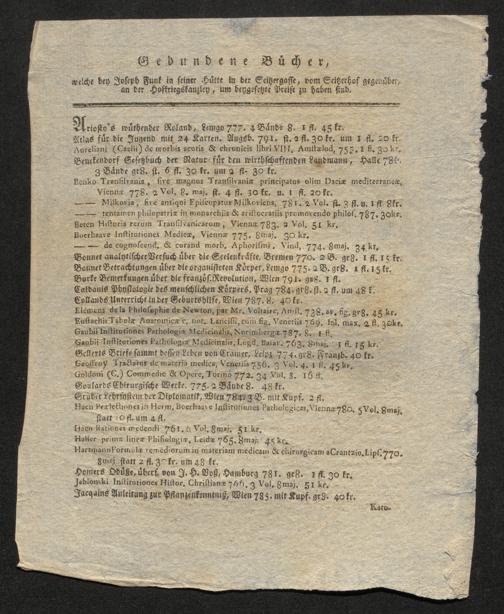 Gebundene Bücher,
welche bey Joseph Funk in seiner Hütte in der Seitzergasse, vom Seitzerhof gegenüber,
an der Hofkriegskanzley, um beygesetzte Preise zu haben sind.
Ariosto's wüthender Roland, Lemgo 777. 4 Bände 8. 1 fl. 45 kr.
Atlas für die Jugend mit 24 Karten. Augsb. 791. st. 2 fl. 30 kr. um 1 fl. 20 kr.
Aureliani (Caelii) de morbis acutis & chronicis libri VIII, Amstælod, 755. 1 fl. 30 kr.
Benekendorf Gesetzbuch der Natur für den wirthschaftenden Landmann, Halle 786.
3 Bände gr8. st. 6 fl. 30 kr. um 2 fl. 30 kr.
Benko Transilvania, sive magnus Transilvaniæ principatus olim Daciæ mediterraneæ,
Viennæ 778. 2 Vol. 8. maj. st. 4 fl. 30 kr. u. 1 fl. 20 kr.
—— Milkovia, sive antiqui Episcopatus Milkoviens, 781. 2 Vol. st. 3 fl. u. 1 fl. 8kr.
—— tentamen philopatriæ in monarchiis & aristocratiis promovendo philos. 787. 30kr.
Beten Historia rerum Transilvanicarum, Viennæ 783. 2 Vol. 51 kr.
Boerhaave Institutiones Medicæ, Viennæ 775. 8maj. 30 kr.
—— de cognoscend, & curand morb, Aphorismi. Vind, 774. 8maj. 34 kr.
Bonnet analytischer Versuch über die Seelenkräfte, Bremen 770. 2 B. gr8. 1 fl. 15 kr.
Bonnet Betrachtungen über die organisirten Körper, Lemgo 775. 2 B. gr8. 1 fl. 15 kr.
Burke Bemerkungen über die französ. Revolution, Wien 791. gr8. 1 fl.
Caldanis Physiologie des menschlichen Körpers, Prag 784. gr8. st. 2 fl. um 48 kr.
Collands Unterricht in der Geburtshilfe, Wien 787. 8. 40 kr.
Elémens de la Philosophie de Newton, par Mr. Voltaire, Amst. 738. av. fig. gr8. 45 kr.
Eustachii Tabulæ Anatomicæ c. not. Lancisii, cum fig. Venetiis 769. fol. max. 2 fl. 30kr.
Gaubii Institutiones Pathologiæ Medicinalis, Norimbergæ 787. 8. 1 fl.
Gaubii Institutiones Pathologiæ Medicinalis, Lugd. Batav. 763. 8maj. 1 fl. 15 kr.
Gellerts Briefe sammt dessen Leben von Cramer, Leipz. 774. gr8. Franzb. 40 kr.
Geoffroy Tractatus de materia medica, Venetiis 756. 3 Vol. 4. 1 fl. 45 kr.
Goldoni (C.) Commedie & Opere, Torino 772. 34 Vol. 8. 16 fl.
Goulards Chirurgische Werke. 775. 2 Bände 8. 48 kr.
Gruber Lehrsystem der Diplomatik, Wien 784. 3 B. mit Kupf. 2 fl.
Haen Prælectiones in Herm, Boerhaave Institutiones Pathologicas, Viennæ 780. 5 Vol. 8maj.
statt 10 fl. um 4 fl.
Haen Rationes medendi 761. 2 Vol. 8maj. 51 kr.
Haller primæ lineæ Phisiologiæ, Leidæ 765. 8maj. 45 kr.
Hartmann Formulæ remediorum in materiam medicam & chirurgicam a Crantzio, Lips. 770.
8maj statt 2 fl. 30 kr. um 48 kr.
Homers Odüßee, übers. von J. H. Voß, Hamburg 781. gr8. 1 fl. 30 kr.
Jablonski Institutiones Histor. Christianæ 766. 3 Vol. 8maj. 51 kr.
Jacquins Anleitung zur Pflanzenkenntniß, Wien 785. mit Kupf. gr8. 40 kr.
Karo-